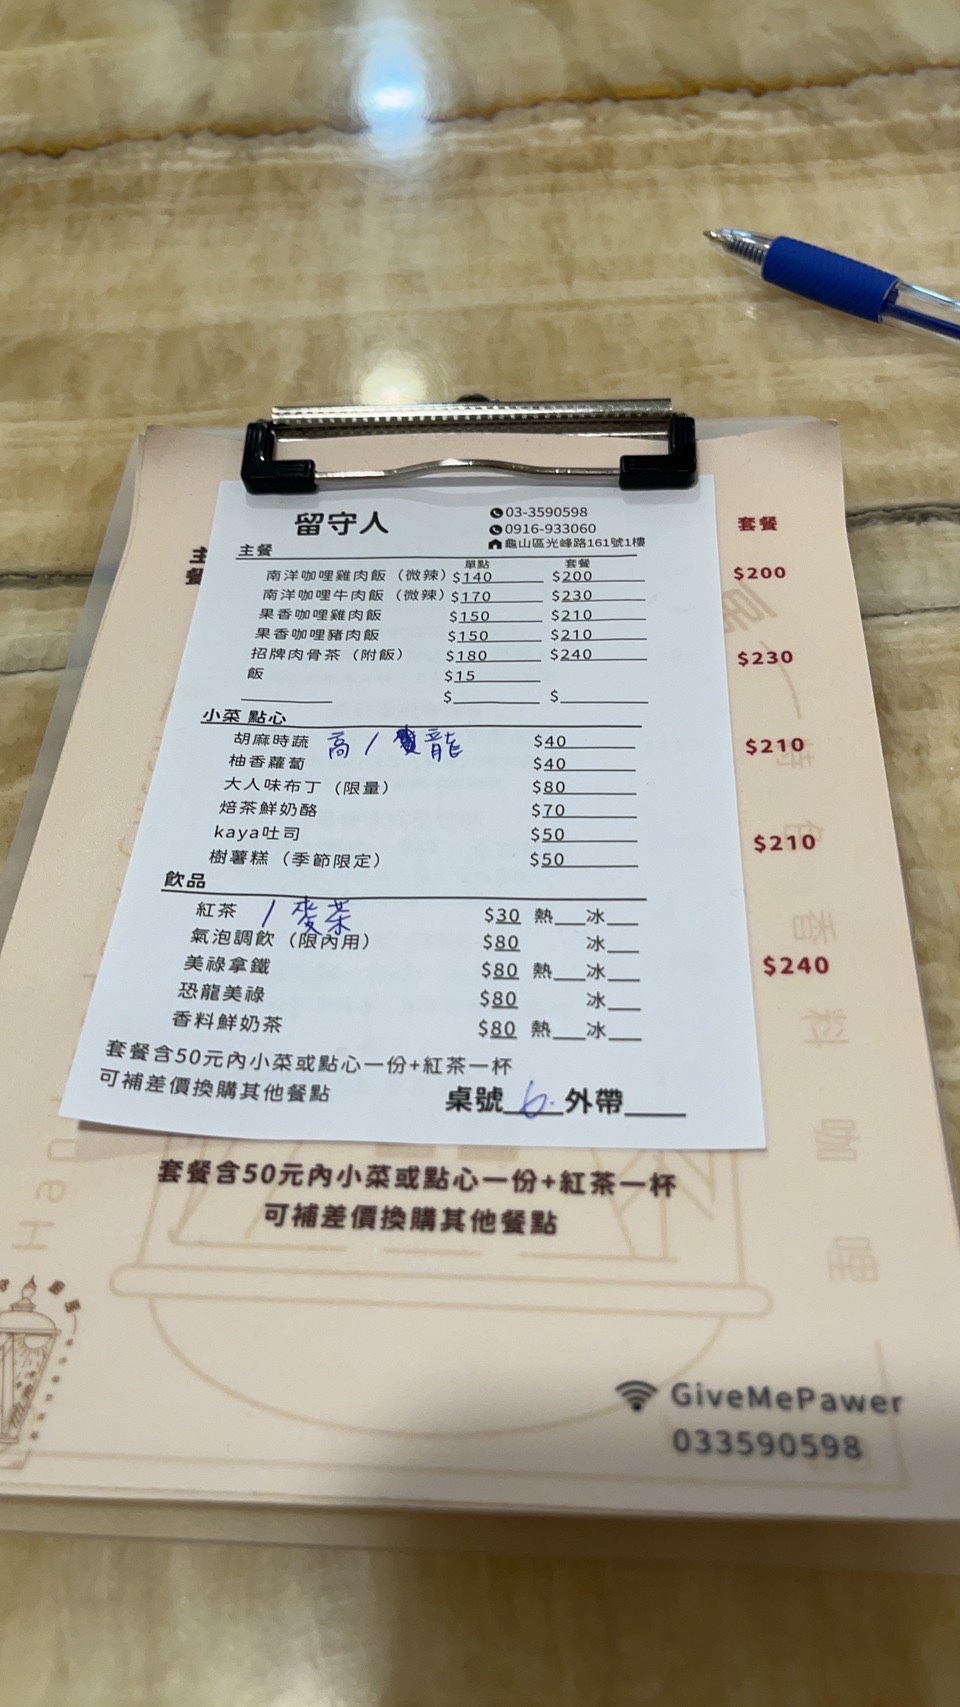 留守人
03-3590598
0916-933060
龜山區光峰路161號1樓
主餐
單點 套餐
南洋咖哩雞肉飯（微辣） $140 $200
南洋咖哩牛肉飯（微辣） $170 $230
果香咖哩雞肉飯 $150 $210
果香咖哩豬肉飯 $150 $210
招牌肉骨茶（附飯） $180 $240
飯 $15
$ $
小菜 點心
胡麻時蔬 高/ 龍 $40
柚香蘿蔔 $40
大人味布丁（限量） $80
焙茶鮮奶酪 $70
kaya吐司 $50
樹薯糕（季節限定） $50
飲品
紅茶 / 麥茶 $30 熱 冰
氣泡調飲（限內用） $80 冰
美祿拿鐵 $80 熱 冰
恐龍美祿 $80 冰
香料鮮奶茶 $80 熱 冰
套餐含50元內小菜或點心一份+紅茶一杯
可補差價換購其他餐點
桌號 6. 外帶
主餐
套餐
$200
$230
$210
$210
$240
套餐含50元內小菜或點心一份+紅茶一杯
可補差價換購其他餐點
GiveMePawer
033590598